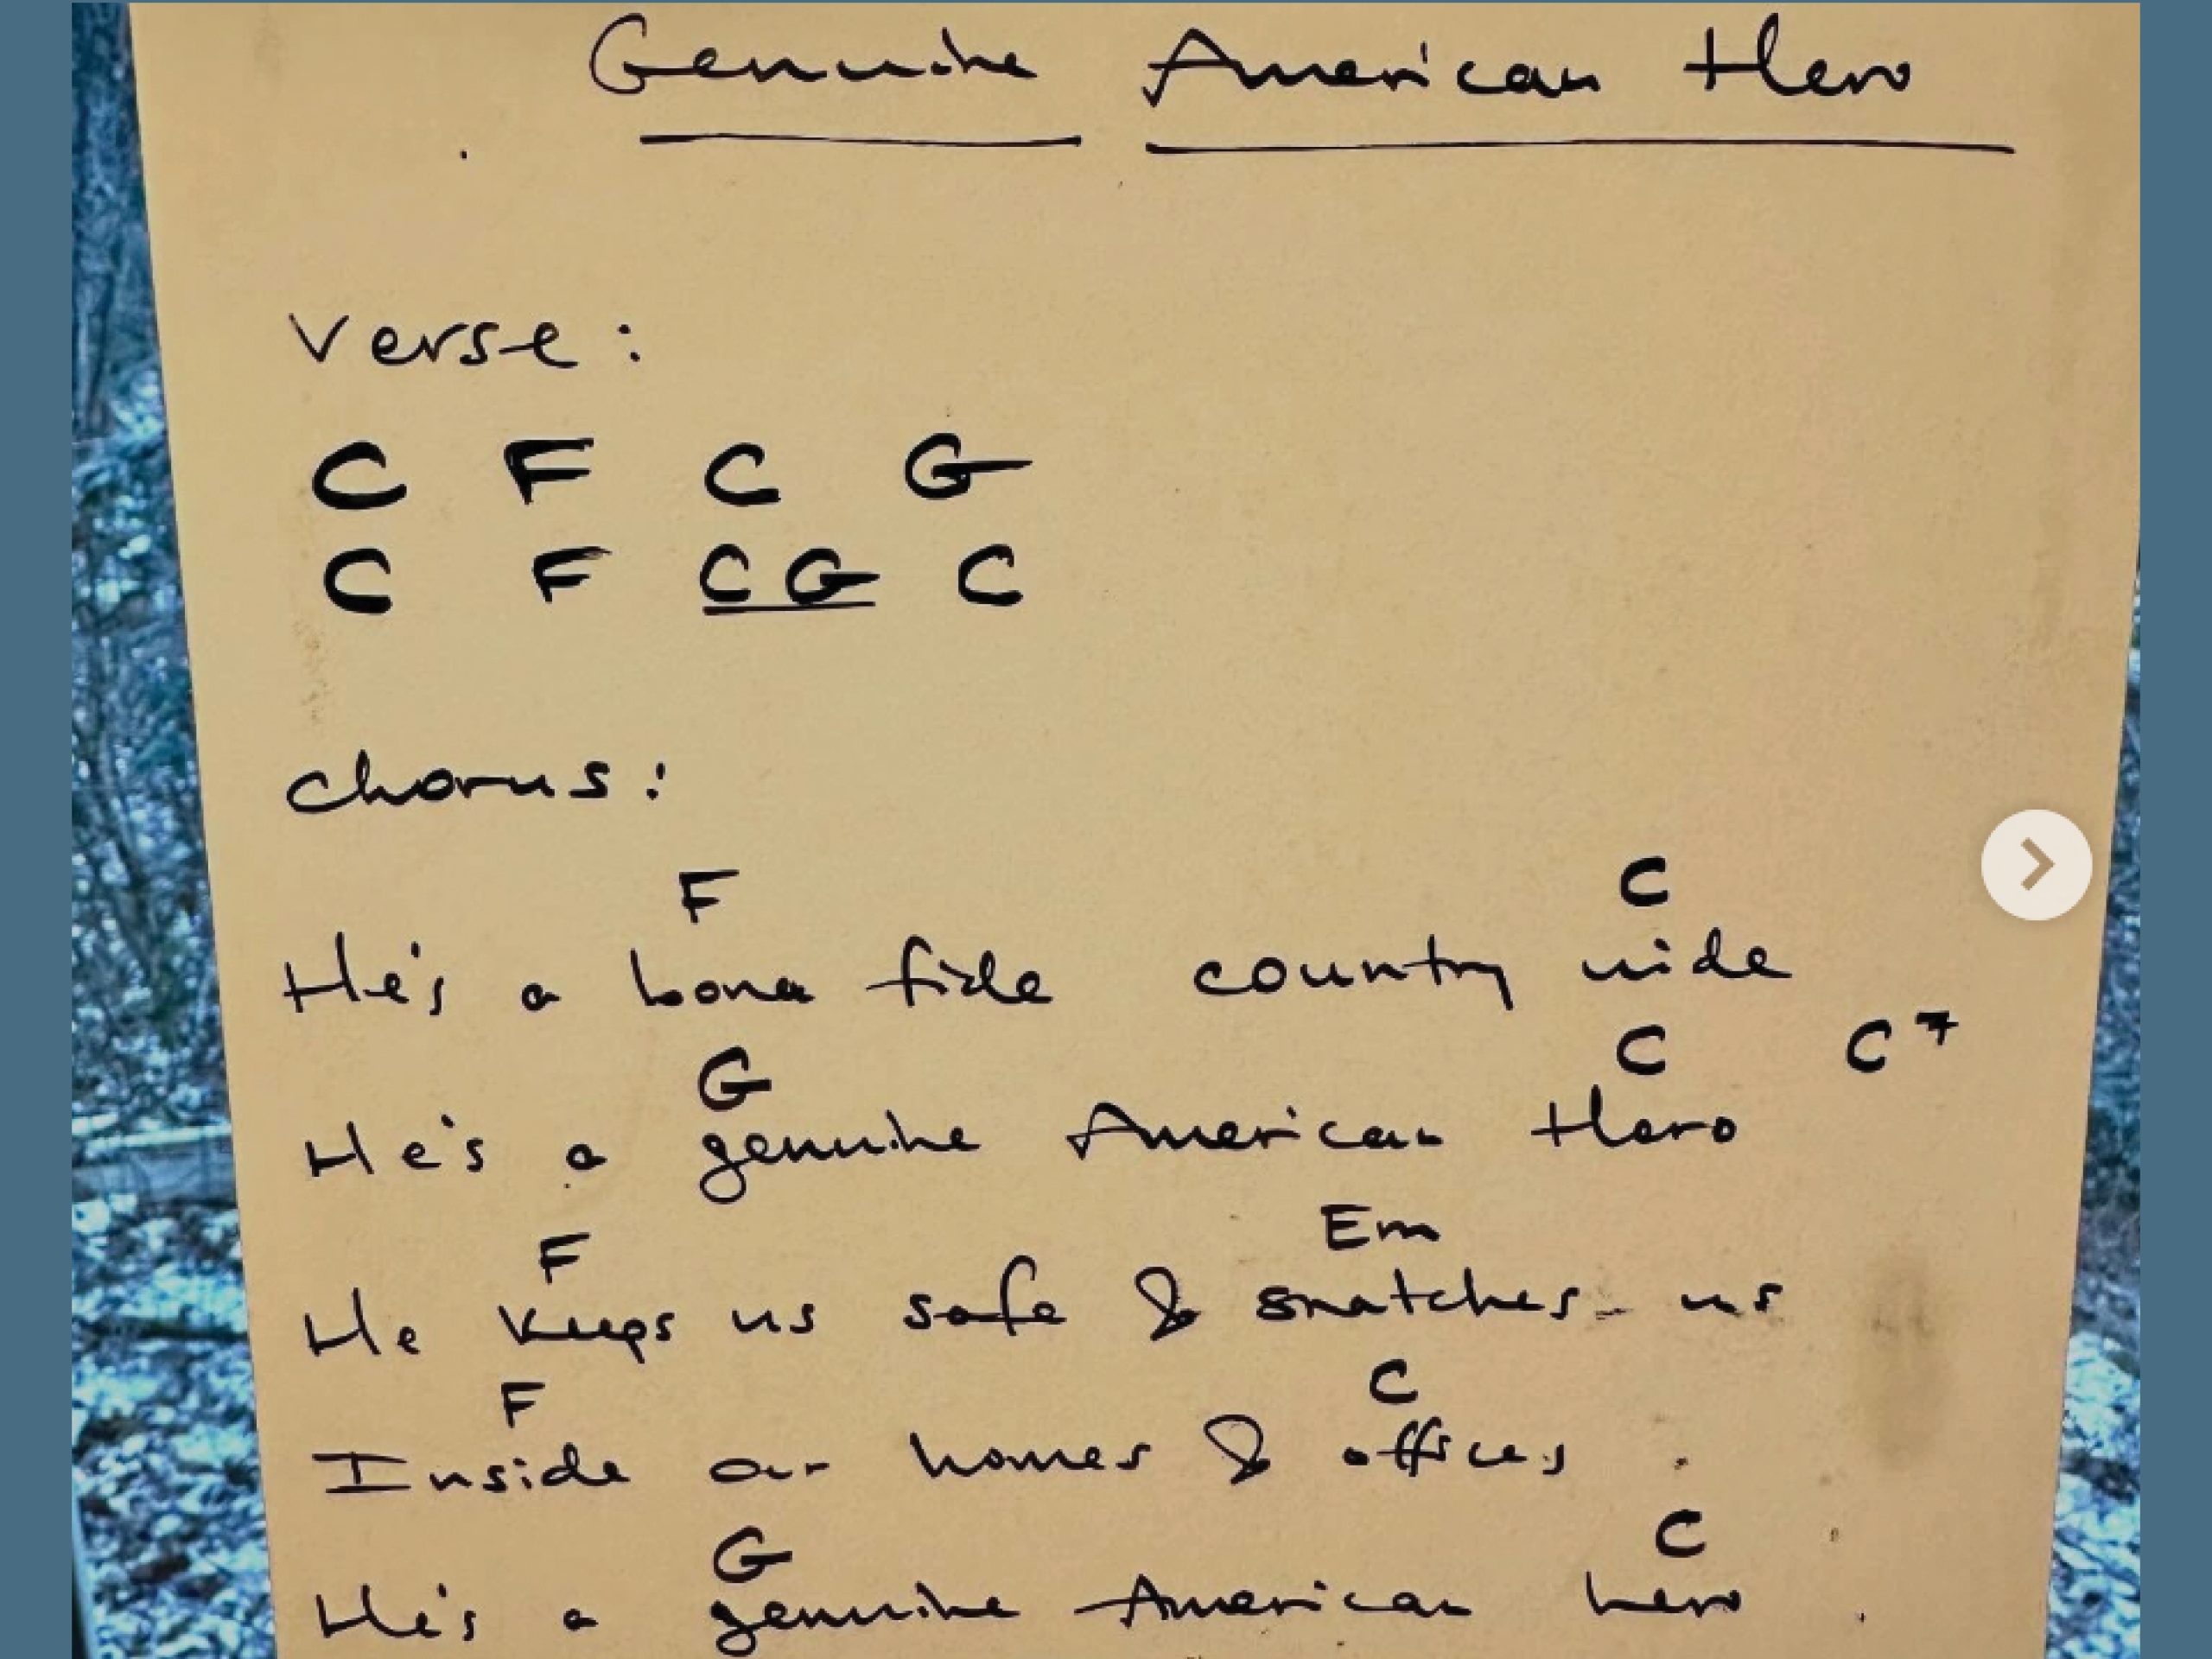 Genuine American Hero
Verse:
C F C G
C F C G C
Chorus:
F C
He's a bona fide country wide
G C C7
He's a genuine American Hero
F Em
He keeps us safe & snatches us
F C
Inside our homes & offices
G C
He's a genuine American hero